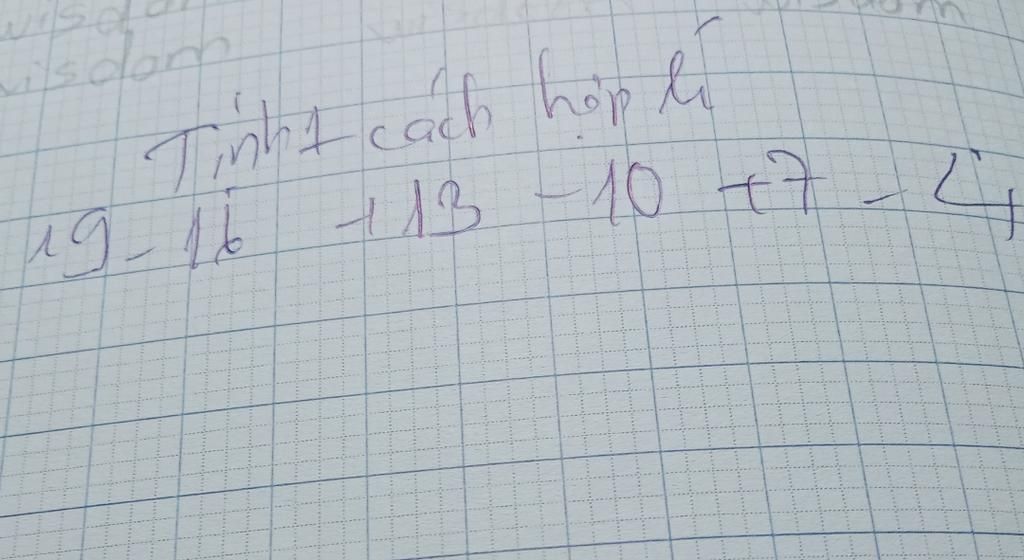 wisdom
wisdom
Tính 1 cách hợp lí
19 - 16 + 13 - 10 + 7 - 4